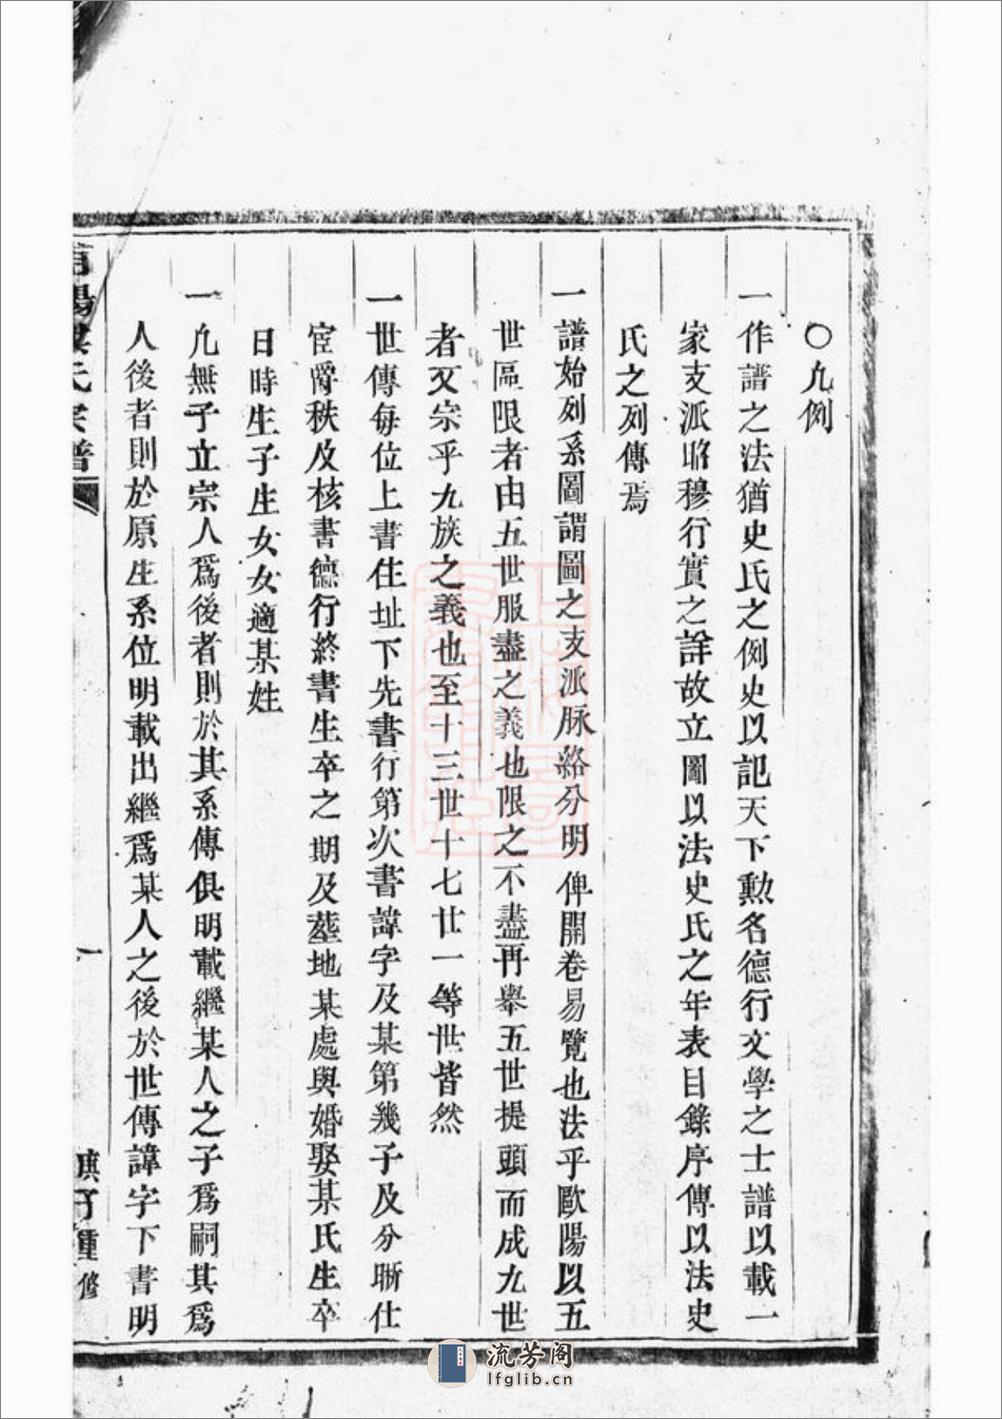 ○凡例
一作譜之法猶史氏之例史以記天下勲名德行文學之士譜以載一
家支派昭穆行實之詳故立圖以法史氏之年表目錄序傳以法史
氏之列傳焉
一譜始列系圖謂圖之支派脉絡分明俾開卷易覽也法乎歐陽以五
世區限者由五世服盡之義也限之不盡再舉五世提頭而成九世
者又宗乎九族之義也至十三世十七廿一等世皆然
一世傳每位上書住址下先書行第次書諱字及某第幾子及分晰仕
宦爵秩及核書德行終書生卒之期及塟地某處與婚娶某氏生卒
日時生子生女女適某姓
一凡無子立宗人爲後者則於其系傳俱明載繼某人之子爲嗣其爲
人後者則於原生系位明載出繼爲某人之後於世傳諱字下書明
陽 氏宗譜
一
重修
流芳阁
lfglib.cn